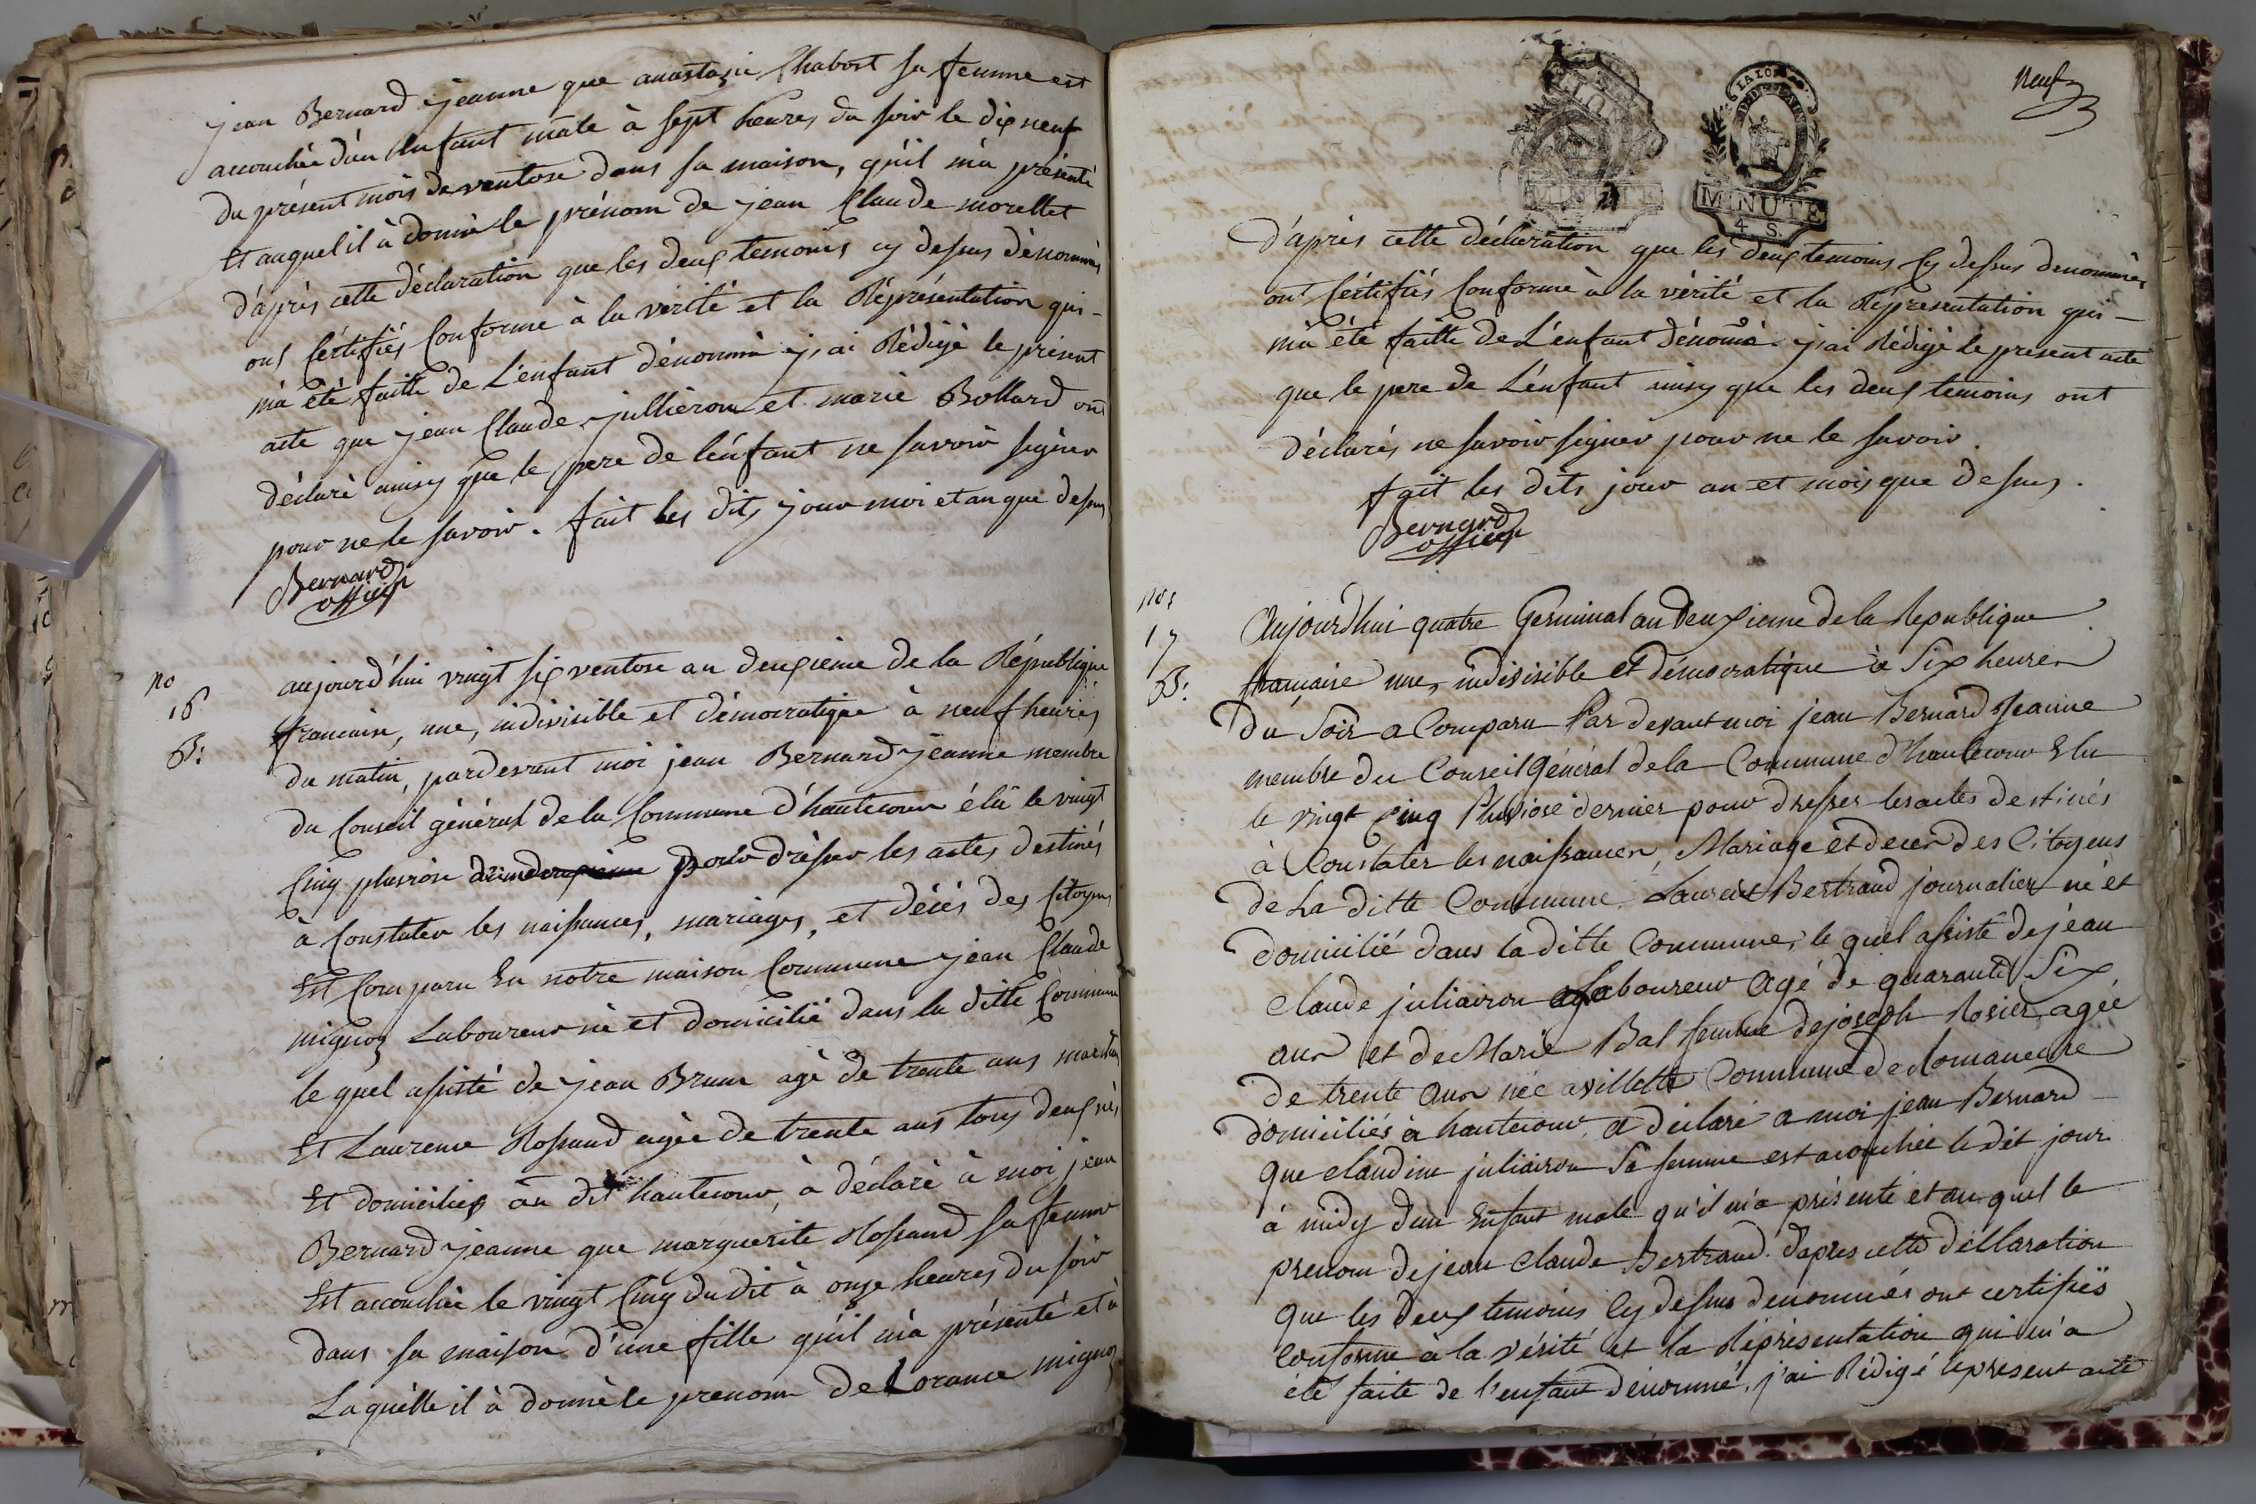 jean Bernard jeanne que anastazie Chabort sa femme est
accouchée d'un Enfant mâle à sept heures du soir le dix neuf
du présent mois de ventose dans sa maison, qu'il m'à présenté
Et auquel il à donné le prénom de jean Claude morellet
d'après cette déclaration que les deux temoins cy dessus dénommés
ont Cértifiés Conforme à la vérité et la Réprésentation qui-
m'à été faitte de L'enfant dénommé j'ai Rédigé le présent
acte que jean Claude jullieron et marie Bollard ont
déclaré ainsy que le pere de l'énfant ne savoir signer
pour ne le savoir. fait les dits jour moi et an que dessus
Bernard
officier
no
16
B:
aujourd'hui vingt six ventose an deuxieme de la République
francaise, une, indivisible et démocratique à neuf heures
du matin, pardevant moi jean Bernard jeanne membre
du Conseil général de la Commune d'hautecour élû le vingt
Cinq pluviose pour drésser les actes destinés
à Constater les naissances, mariages, et décés des Citoyens
Est Comparu En notre maison Commune jean Claude
mignoz Laboureur né et domicilié dans la ditte Commune
le quel assisté de jean Brun agé de trente ans
Et Laurence Rossand agée de trente ans tous deux nés
Et domiciliés au dit hautecour, à déclaré à moi jean
Bernard jeanne que marguerite Rossand sa femme
Est accouchée le vingt Cinq du dit à onze heures du soir
dans sa maison d'une fille qu'il m'à présenté et à
Laquelle il à donné le prenom de Lorance mignoz
neuf
MINUTE
MINUTE
4 S.
D'aprés cette déclaration que les deux temoins Cy dessus denommés
ont Cértifiés Conforme à la vérité et la Réprésentation qui-
m'a été faitte de L'énfant dénomé j'ai Rédigé le present acte
que le pere de L'énfant ainsy que les deux temoins ont
déclarés ne savoir signer pour ne le savoir.
fait les dits jour an et mois que dessus.
Bernard
officier
nos
17
B:
Aujourd'hui quatre Germinal an Deuxieme de la Republique
francaise une, indivisible et democratique à Six heures
Du Soir a Comparu Par devant moi jean Bernard Jeanne
membre du Conseil Général de la Commune d'hautecour Elu
le vingt Cinq Pluviose dernier pour dresser les actes destinés
à Constater les naissances, Mariage et deces des Citoyens
de La ditte Commune. Laurent Bertrand journalier né et
domicilié dans la ditte Commune, le quel assisté de jean
claude juliairon Laboureur agé de quarante Six
ans et de Marie Bal femme de joseph Rosier agée
de trente ans née a villette Commune de
domiciliés à hautecour, a déclaré a moi jean Bernard
que claudine juliairon Sa femme est acouchée le dit jour
à midy d'un Enfant male qu'il m'a présenté et au quel le
prenom de jean claude Bertrand. d'apres cette déClaration
que les Deux temoins Cy dessus denommés ont certifiés
Conforme à la vérité et la Réprésentation qui m'a
été faite de l'enfant dénommé, j'ai Rédigé le present acte